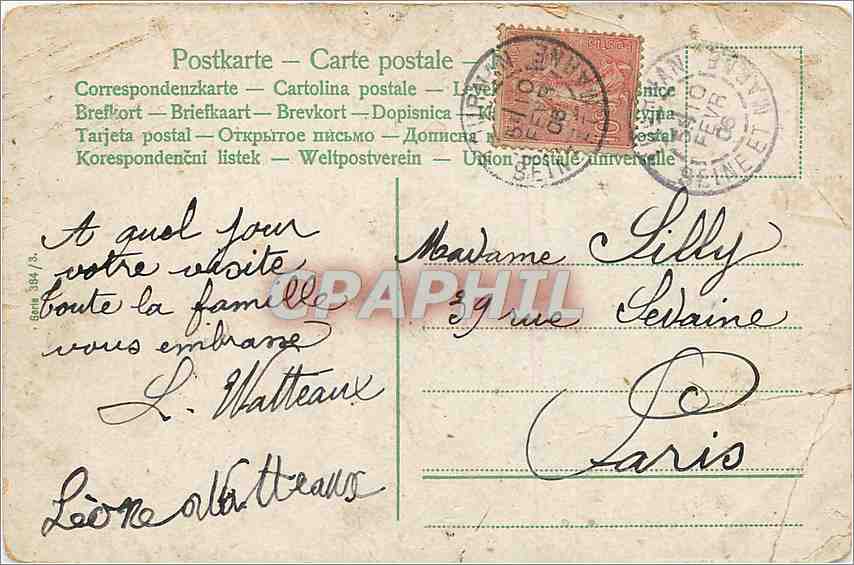 Postkarte — Carte postale —
Correspondenzkarte — Cartolina postale —
Brefkort — Briefkaart — Brevkort — Dopisnica
Tarjeta postal — Открытое письмо — Дописна
Korespondenční listek — Weltpostverein — Union postale universelle
SEINE ET MARNE
10
FEVR
06
SEINE ET MARNE
10
FEVR
06
Serie 384/3.
A quel jour
votre visite
toute la famille
vous embrasse
L. Watteaux
Léone Watteaux
Madame Silly
39 rue Sedaine
Paris
CPAPHIL